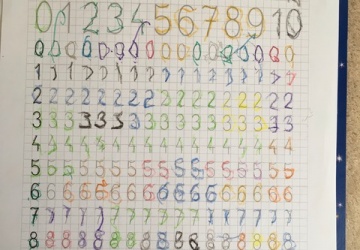 0 1 2 3 4 5 6 7 8 9 10
0 0 0 0 0 0 0 0 0 0 0 0 0 0 0 0 0
1 1 1 1 1 1 1 1 1 1 1 1 1 1 1 1 1
2 2 2 2 2 2 2 2 2 2 2 2 2 2 2 2 2
3 3 3 3 3 3 3 3 3 3 3 3 3 3 3 3 3
4 4 4 4 4 4 4 4 4 4 4 4 4 4 4 4 4
5 5 5 5 5 5 5 5 5 5 5 5 5 5 5 5 5
6 6 6 6 6 6 6 6 6 6 6 6 6 6 6 6 6
7 7 7 7 7 7 7 7 7 7 7 7 7 7 7 7 7
8 8 8 8 8 8 8 8 8 8 8 8 8 8 8 8 8